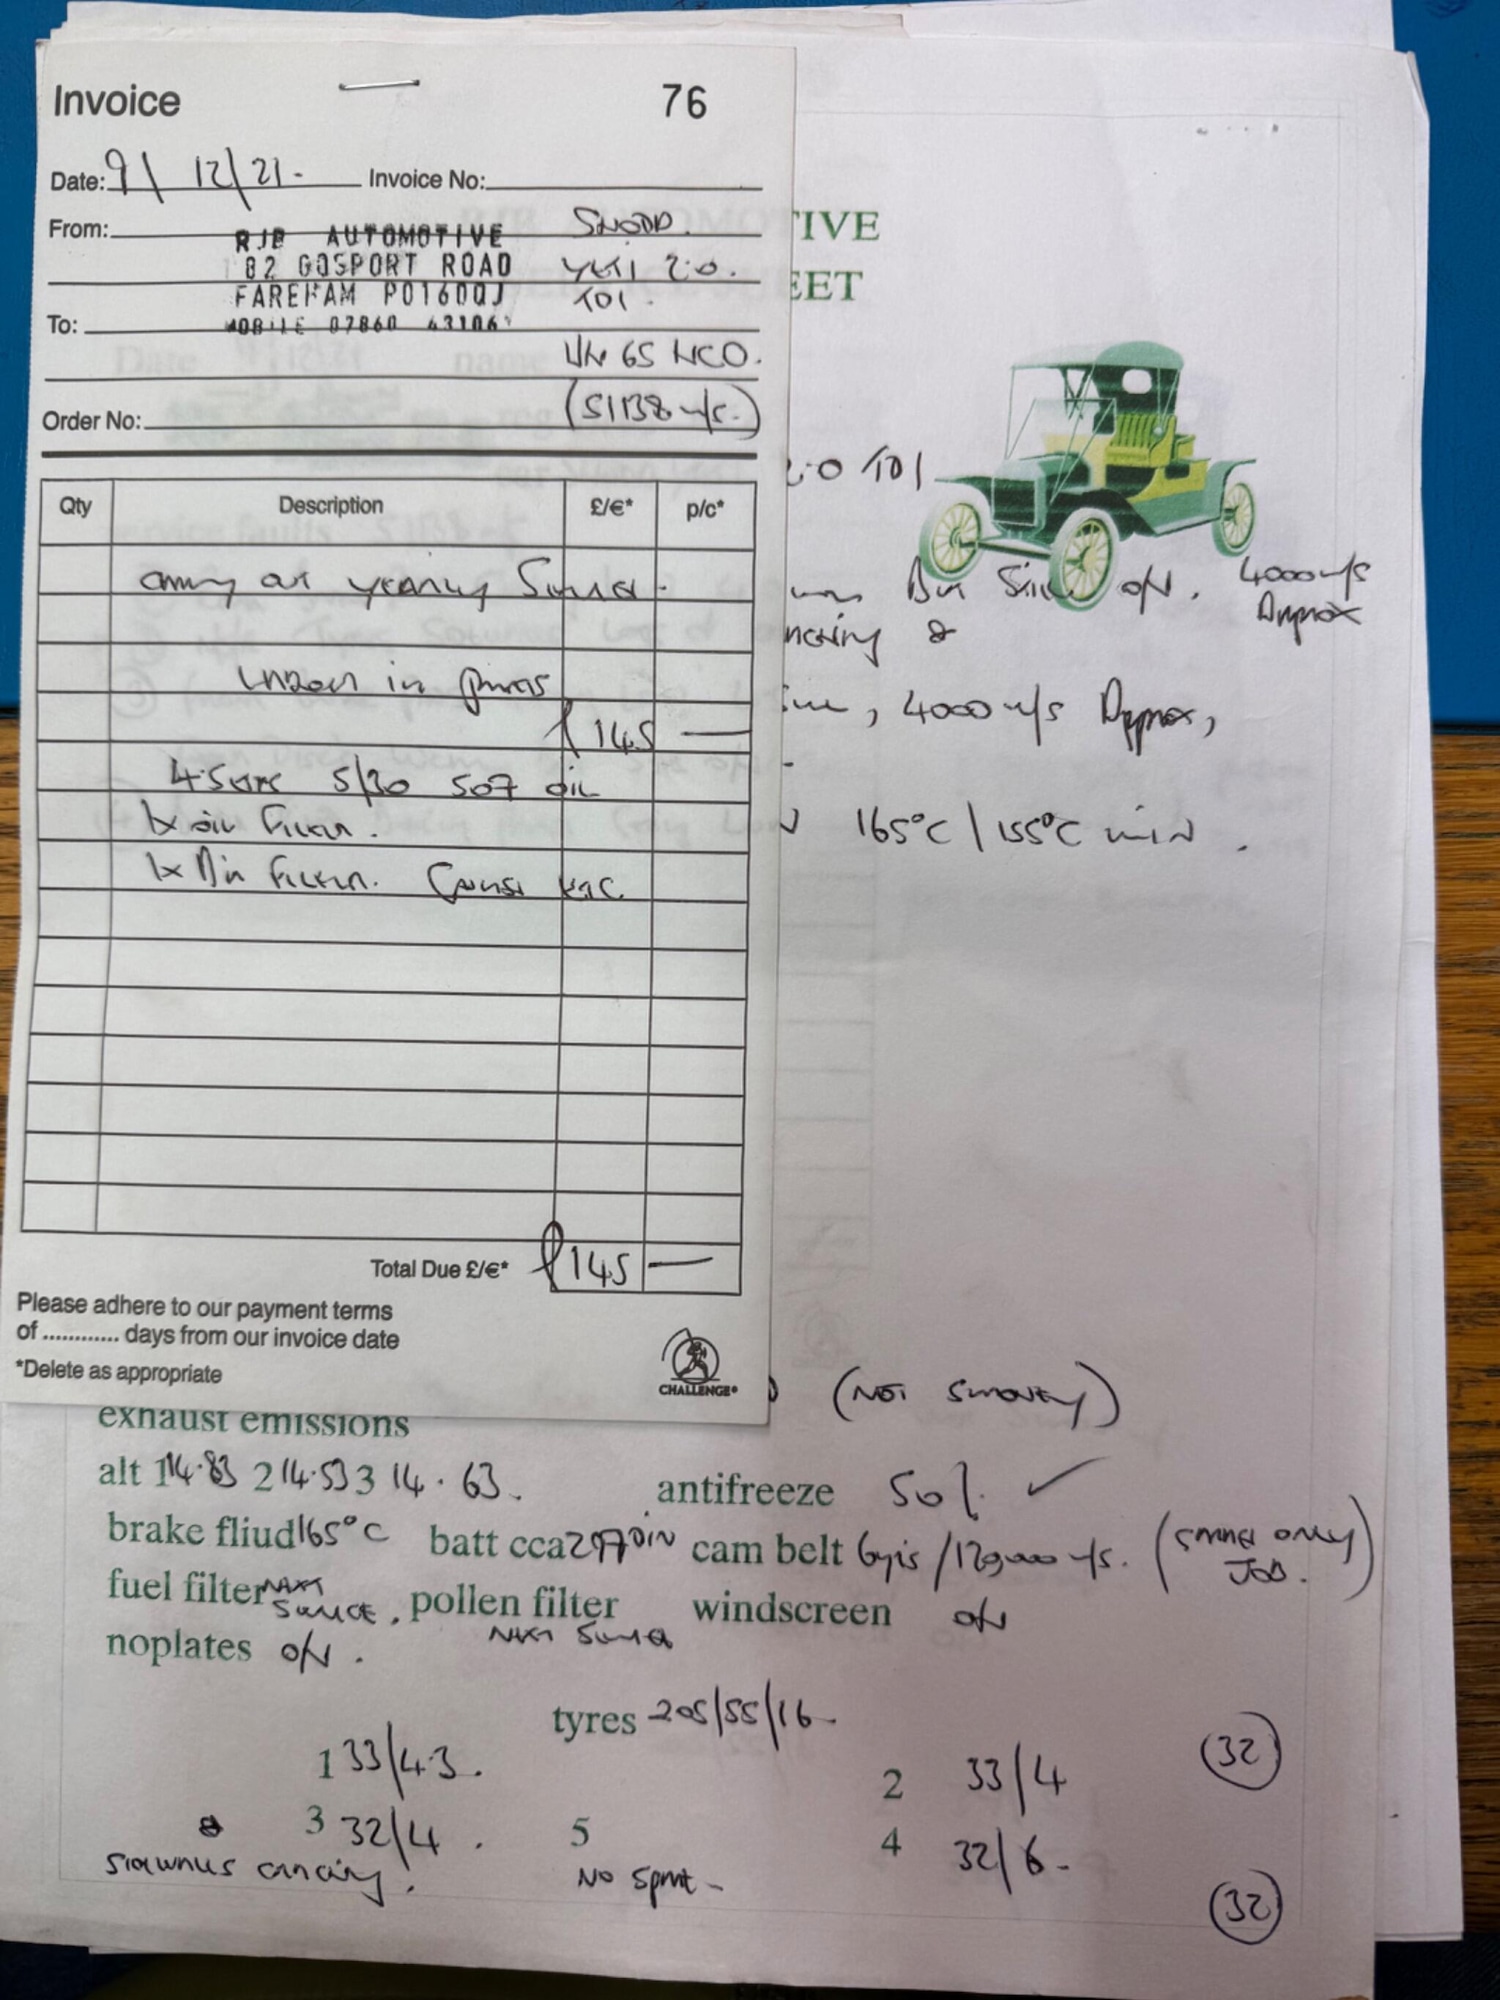 Invoice 76
Date: 9/ 12/21. Invoice No:
From: RJB AUTOMOTIVE
82 GOSPORT ROAD
FAREHAM PO160QJ
MOBILE 07860 43106
SKODA.
YETI 2.0.
TDI.
To:
65 HCO.
Order No: (51138 m/s.)
Qty Description £/€* p/c*
carry out yearly Service.
labour in parts
£145 —
4.5 LTRS 5/30 507 oil
1x oil Filter.
1x Air Filter. Genset vac.
Total Due £/€* £145 —
Please adhere to our payment terms
of ............ days from our invoice date
*Delete as appropriate
CHALLENGE®
IVE
EET
2.0 TDI
But Still ok. 4000 m/s
Approx
&
, 4000 m/s Approx,
165°C / 155°C min.
(NOT SMOKEY)
exhaust emissions
alt 1 14.83 2 14.53 3 14.63. antifreeze 50%. ✓
brake fliud 165°C batt cca 297 DIN cam belt 6yrs/120,000 m/s. (only
JOB.
fuel filter NEXT
SERVICE. pollen filter windscreen ok
NEXT SERVICE
noplates ok.
tyres 205/55/16.
1 33/4.3. 2 33/4 (32)
3 32/4. 5 4 32/6.
cracking. No Spare - (32)